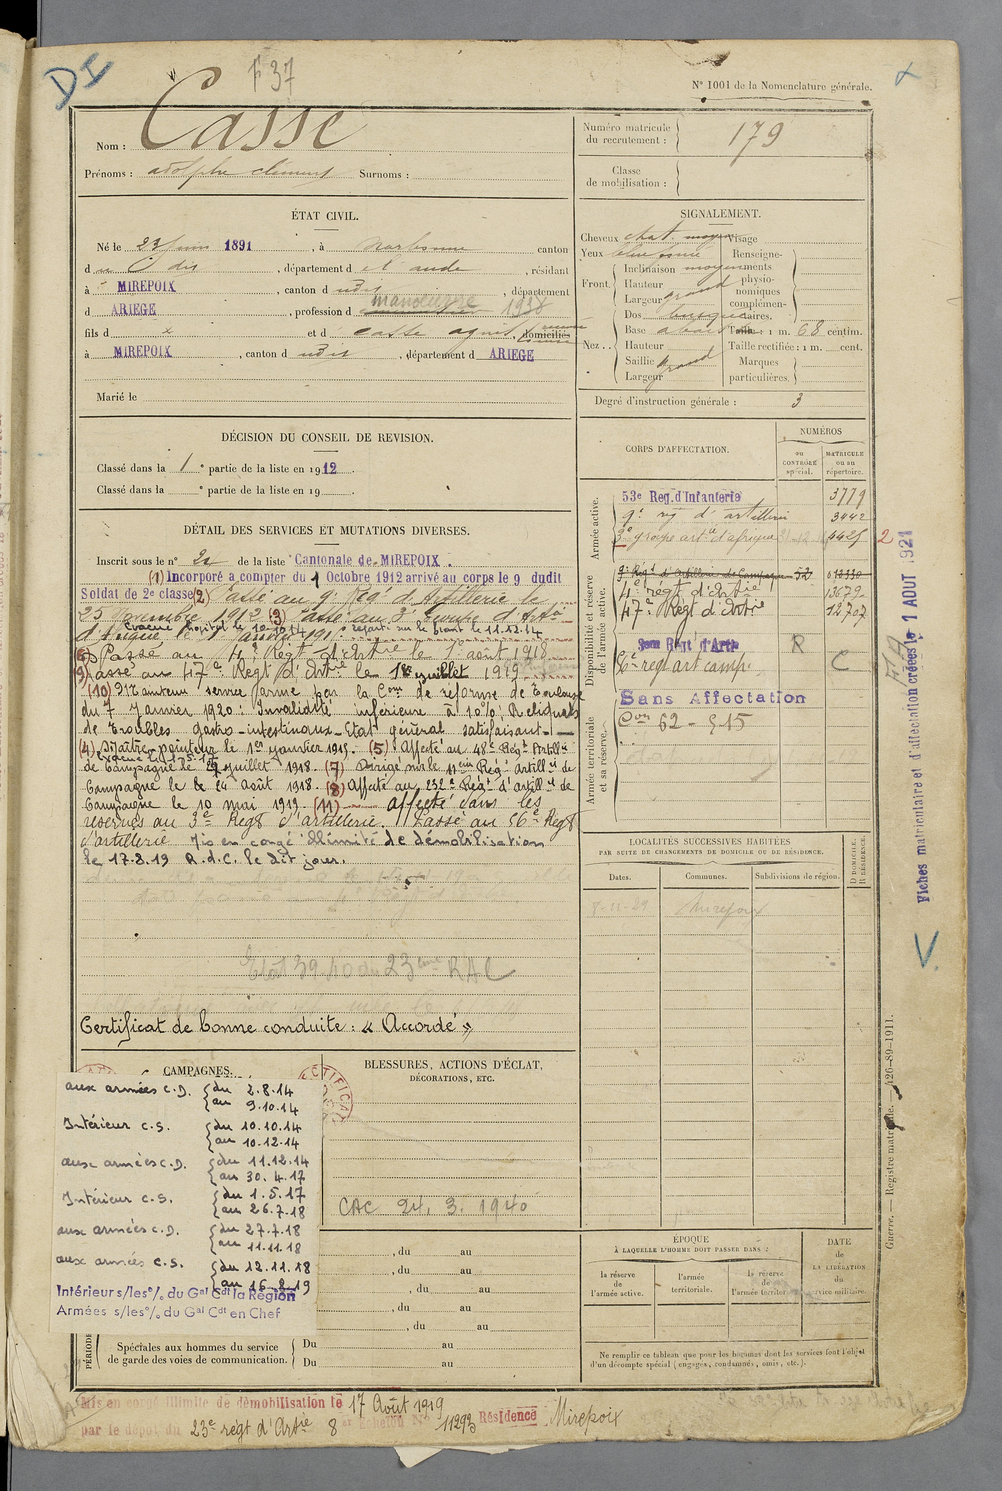 DI
F 37
N° 1001 de la Nomenclature générale.
Nom : Casse
Prénoms : adolphe clément Surnoms :
Numéro matricule du recrutement : 179
Classe de mobilisation :
ÉTAT CIVIL.
Né le 23 juin 1891, à narbonne canton
d u dis, département d el aude, résidant
à MIREPOIX, canton d udis, département
d ARIEGE, profession d manoeuvre 1938
fils d x et d casse agnès, domiciliés
à MIREPOIX, canton d udis, département d ARIEGE
Marié le
SIGNALEMENT.
Cheveux chat. moyen Visage
Yeux
Front. Inclinaison moyen
Hauteur
Largeur grand
Nez . . Dos busqué
Base
Hauteur
Saillie grand
Largeur
Renseignements physionomiques complémentaires.
Taille : 1 m. 68 centim.
Taille rectifiée : 1 m. cent.
Marques particulières.
Degré d'instruction générale : 3
DÉCISION DU CONSEIL DE REVISION.
Classé dans la 1e partie de la liste en 1912.
Classé dans la e partie de la liste en 19 .
DÉTAIL DES SERVICES ET MUTATIONS DIVERSES.
Inscrit sous le n° 24 de la liste Cantonale de MIREPOIX.
(1) Incorporé a compter du 1 Octobre 1912 arrivé au corps le 9 dudit
Soldat de 2e classe (2) Passé au 9e Régt d'Artillerie le
25 Novembre 1912 (3) Passé au 3e Groupe d'Artie
d'Afrique le Janvier 191
Evacué hopital le 10.10.14 reparti sur le front le 11.12.14
(6) Passé au 4e Régt d'Artrie le 1er août 1918
(9) Passé au 47e Régt d'Artrie le 1er juillet 1919
(10) Maintenu service armé par la Con de réforme de Toulouse
du 7 Janvier 1920 : Invalidité inférieure à 10% Reliquats
de troubles gastro-intestinaux - Etat général satisfaisant
(4) Maître-pointeur le 1er janvier 1915. (5) Affecté au 48e Régt Artillie
de Campagne le juillet 1918. (7) Dirigé sur le Régt Artillie de
Campagne le 24 août 1918. (8) Affecté au 232e Régt d'Artillie de
Campagne le 10 mai 1919. (11) affecté dans les
réserves au 3e Régt d'artillerie. Passé au 56e Régt
d'artillerie Mis en congé illimité de démobilisation
le 17.8.19 R.d.C. le dit jour.
Etat 39.40 du 23ème RAC
Certificat de bonne conduite : « Accordé »
CORPS D'AFFECTATION.
NUMÉROS
au CONTRÔLE spécial.
MATRICULE ou au répertoire.
Armée active.
53e Reg. d'Infanterie 3779
9e rég d'artillerie 3442
3e groupe artie d'afrique 5425 2
Disponibilité et réserve de l'armée active.
9e Régt d'Artillerie de Campagne
4e regt d'artrie 13672
47e Regt d'Artrie 12707
3eme Régt d'Artie R
56e regt art camp C
Armée territoriale et sa réserve.
Sans Affectation
Con 62 - 515
LOCALITÉS SUCCESSIVES HABITÉES
PAR SUITE DE CHANGEMENTS DE DOMICILE OU DE RÉSIDENCE.
Dates. Communes. Subdivisions de région. D DOMICILE. R RÉSIDENCE.
8-11-29 Mirepoix
Fiches matriculaire et d'affectation créées le 1 AOUT 1921
V.
Guerre. — Registre matricule. — 426-89-1911.
CAMPAGNES.
aux armées C.D. du 2.8.14
au 9.10.14
Intérieur C.S. du 10.10.14
au 10.12.14
aux armées C.D. du 11.12.14
au 30.4.17
Intérieur C.S. du 1.5.17
au 26.7.18
aux armées C.D. du 27.7.18
au 11.11.18
aux armées C.S. du 12.11.18
au 16.8.19
Intérieur s/les o/. du Gal Cdt la Région
Armées s/les o/. du Gal Cdt en Chef
BLESSURES, ACTIONS D'ÉCLAT,
DÉCORATIONS, ETC.
CAC 24. 3. 1940
, du au
, du au
, du au
, du au
, du au
PÉRIODE
Spéciales aux hommes du service de garde des voies de communication. Du au
Du au
ÉPOQUE
À LAQUELLE L'HOMME DOIT PASSER DANS :
la réserve de l'armée active.
l'armée territoriale.
la réserve de l'armée territor
DATE de LA LIBÉRATION du service militaire.
Ne remplir ce tableau que pour les hommes dont les services font l'objet
d'un décompte spécial (engagés, condamnés, omis, etc.).
Mis en congé illimité de démobilisation le 17 Août 1919
par le dépôt du 23e régt d'Artrie 8e Echelon N° 11293 Résidence Mirepoix